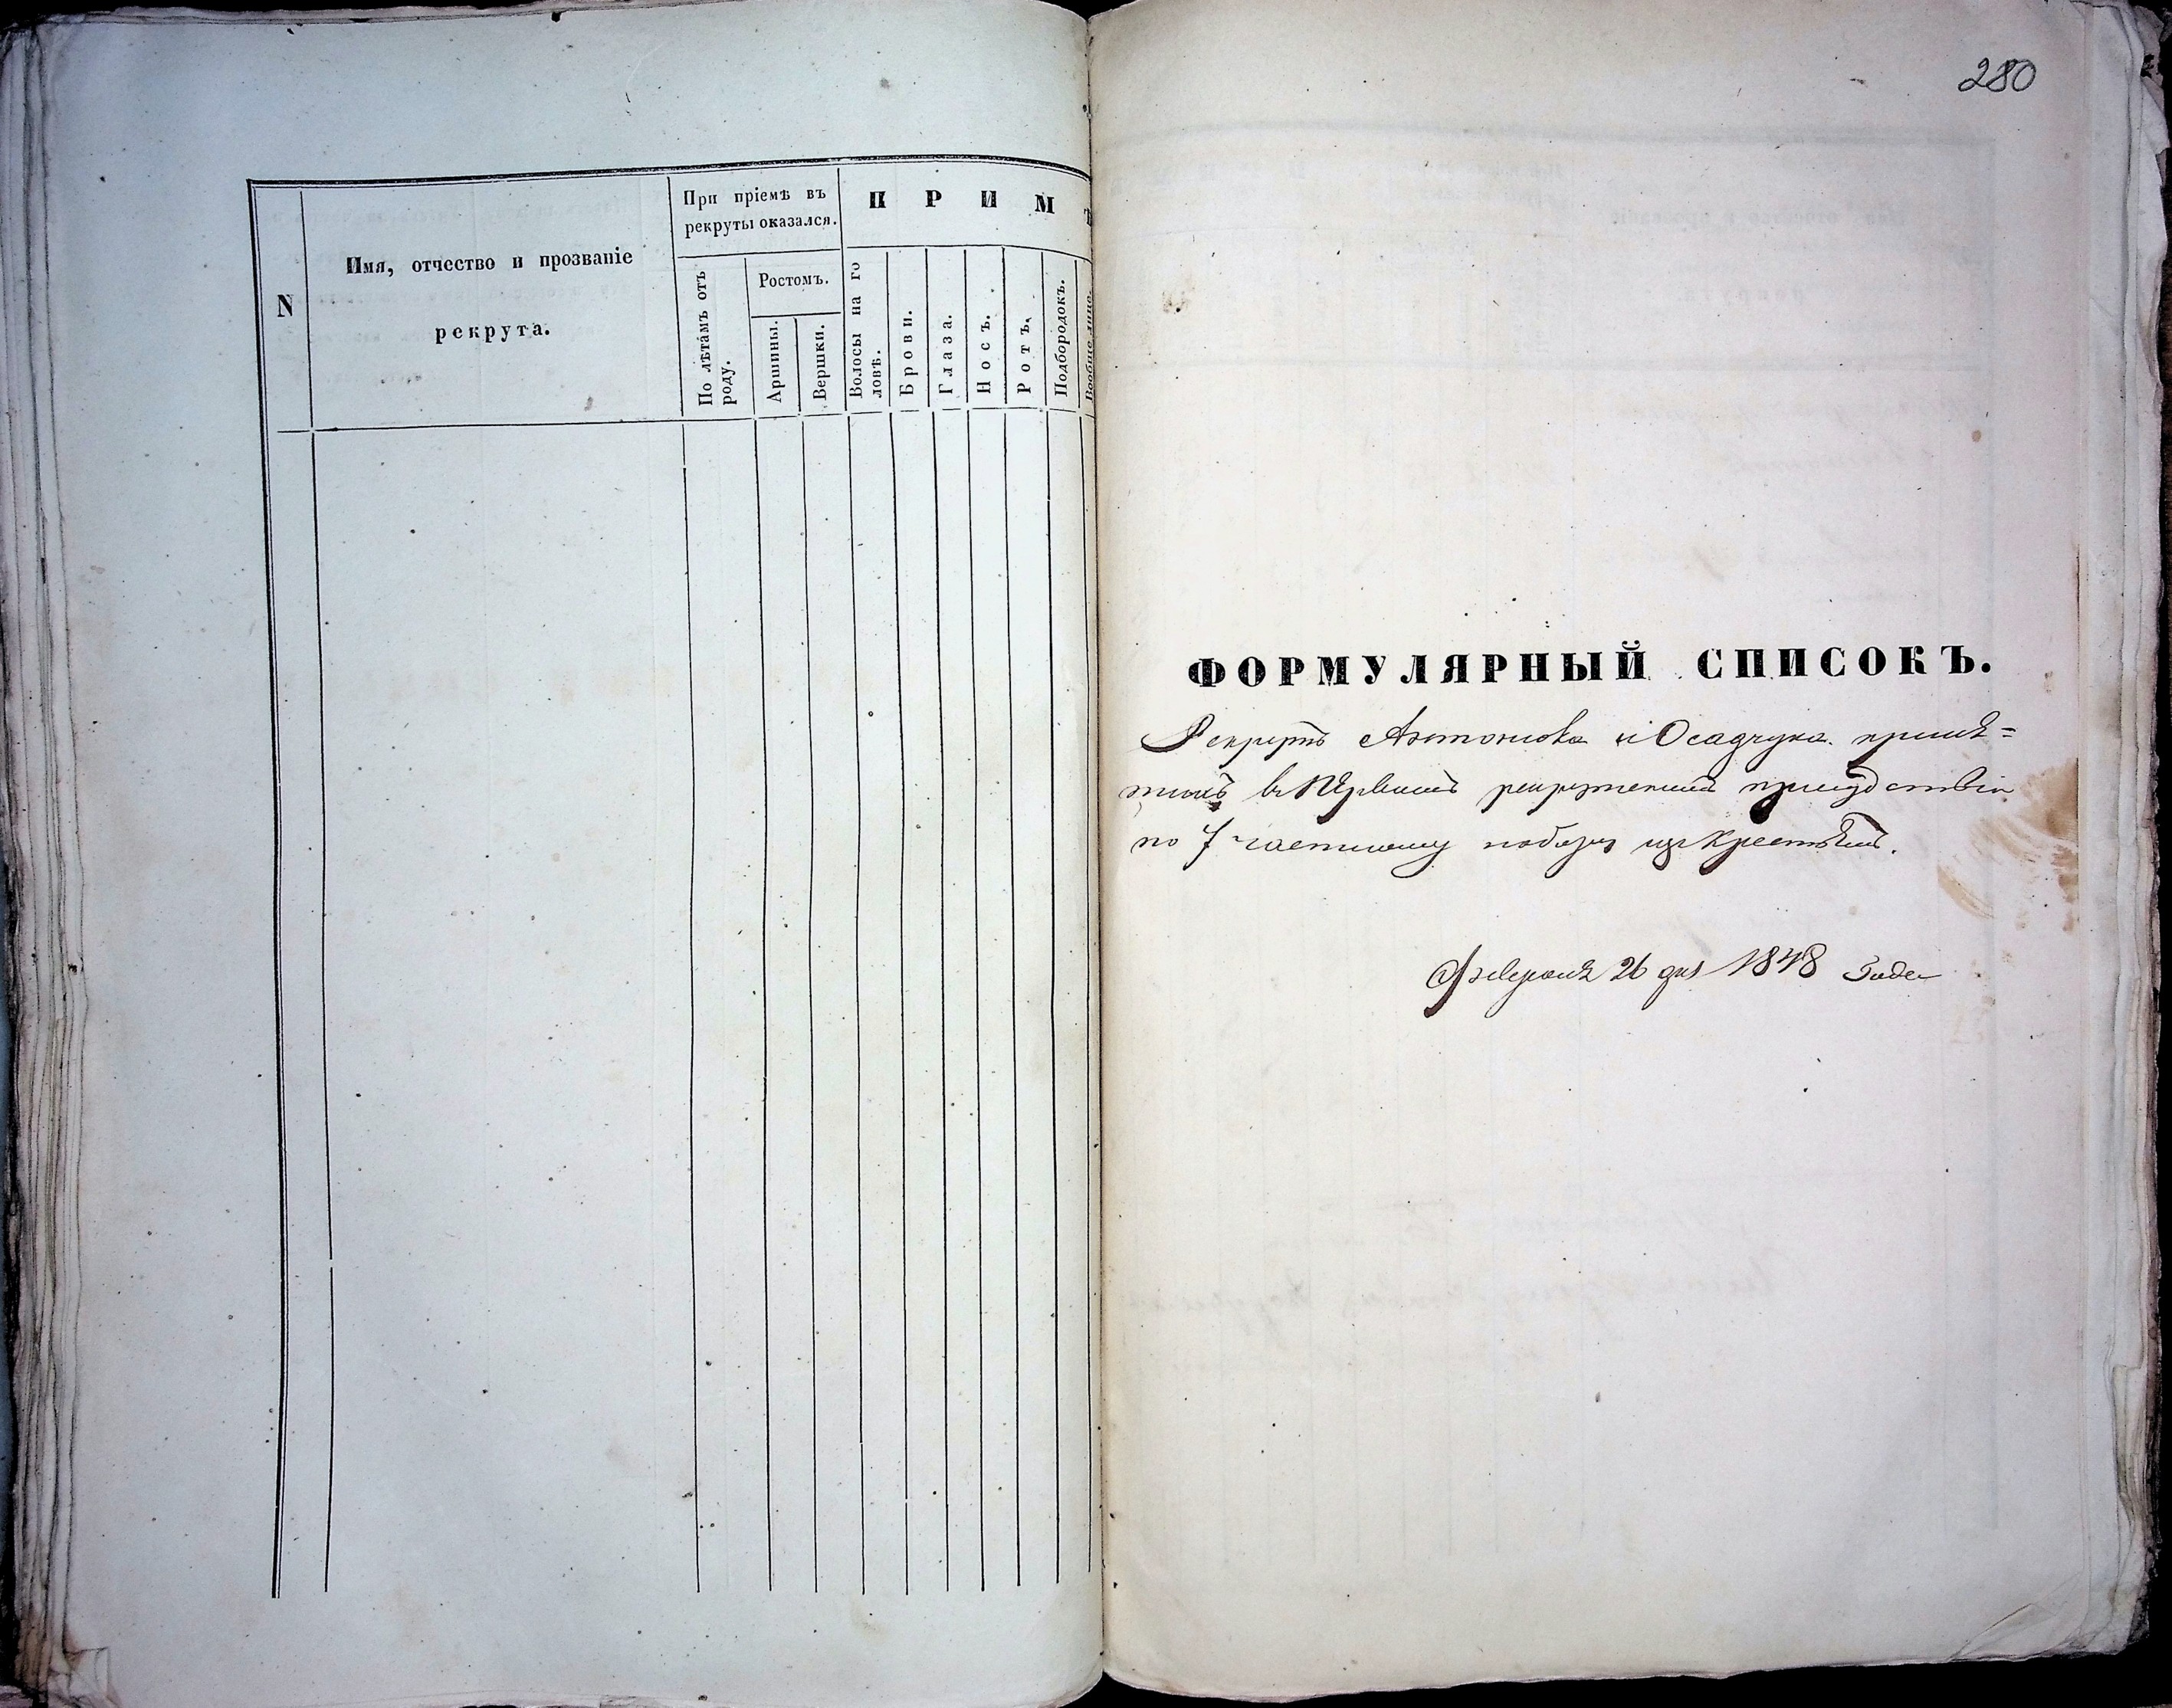 N
Имя, отчество и прозваніе
рекрута.
При пріемѣ въ
рекруты оказался.
По лѣтамъ отъ
роду.
Ростомъ.
Аршины.
Вершки.
П Р И М Ѣ
Волосы на го
ловѣ.
Брови.
Глаза.
Носъ.
Ротъ.
Подбородокъ.
Вообще лице.
280
ФОРМУЛЯРНЫЙ СПИСОКЪ.
Рекрутъ Антонова и Осадчука приня=
тыхъ в рекрутскомъ присудствіи
по 7 частному набору изъ крестьянъ.
Февраля 26 дня 1848 Года